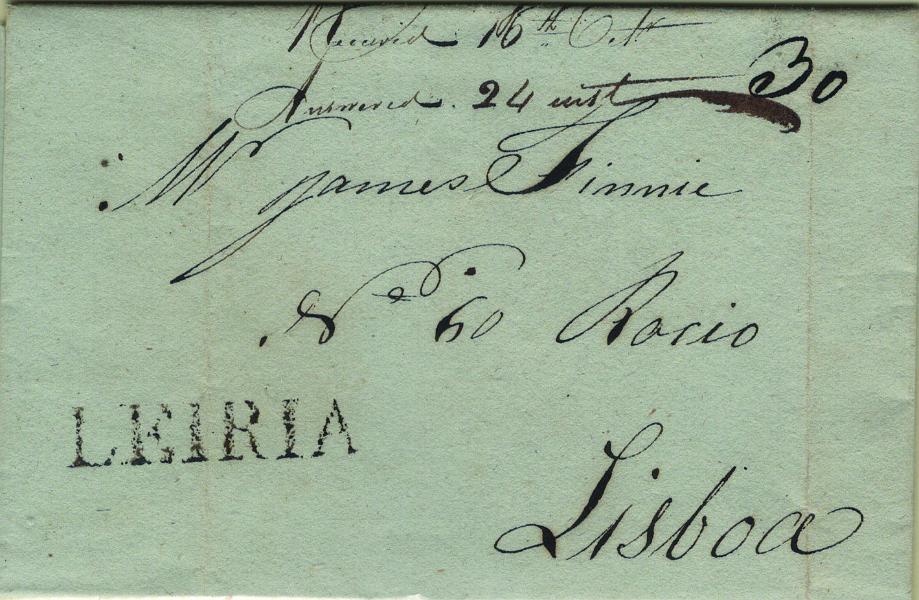 Received 16th Octr
Answered 24 inst
30
Mr James Finnie
No 60 Rocio
LEIRIA
Lisboa